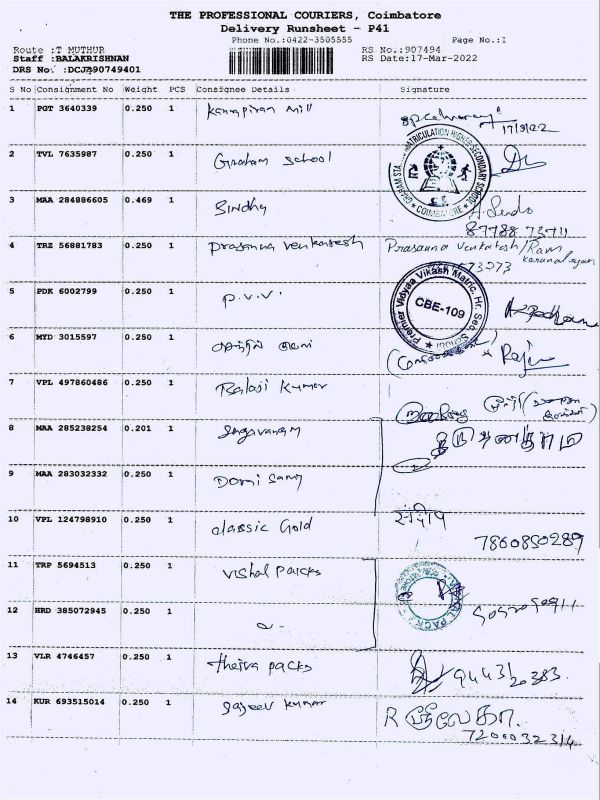 THE PROFESSIONAL COURIERS, Coimbatore
Delivery Runsheet - P41
Phone No.:0422-3505555
Page No.:1
Route :T MUTHUR
RS No.:907494
Staff :BALAKRISHNAN
RS Date:17-Mar-2022
DRS No. :DCJA90749401
S No Consignment No Weight PCS Consignee Details Signature
1 PGT 3640339 0.250 1 Kanapiran mill
17/3/22
2 TVL 7635987 0.250 1 Graham School
MATRICULATION HIGHER SECONDARY SCHOOL
* COIMBATORE *
3 MAA 284886605 0.469 1 Sindhu
87788 73711
4 TRZ 56881783 0.250 1 prasanna venkatesh Prasanna Venkatesh/Ram
5 PDK 6002799 0.250 1 P.V.V.
Premier Vidyaa Vikash Matric. Hr. Sec. School
CBE-109
6 MYD 3015597 0.250 1
7 VPL 497860486 0.250 1 Balaji Kumar
8 MAA 285238254 0.201 1
9 MAA 283032332 0.250 1 Dorai Samy
10 VPL 124798910 0.250 1 classic Gold संदीप
7860850289
11 TRP 5694513 0.250 1 vishal packs
12 HRD 385072945 0.250 1
13 VLR 4746457 0.250 1 theiva packs 9443120383
14 KUR 693515014 0.250 1 Sajeev kumar R ஸ்ரீலேகா.
7200032314